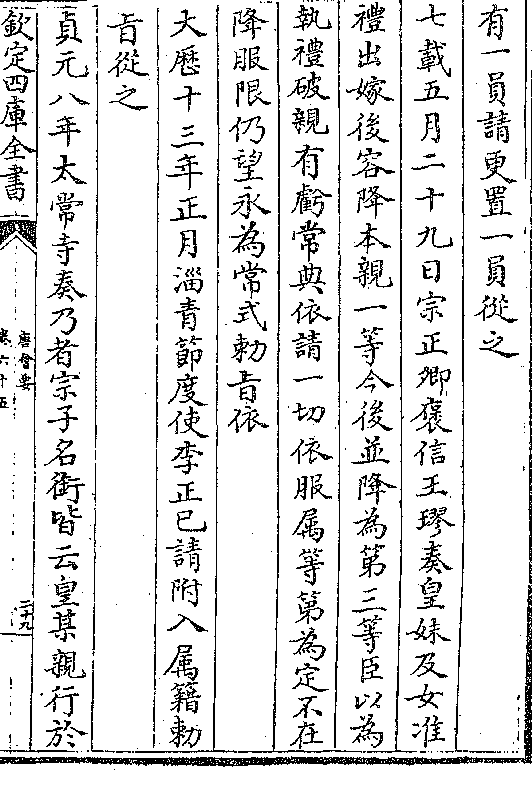 有一員請更置一員從之
七載五月二十九日宗正卿褒信王璆奏皇妹及女准
禮出嫁後容降本親一等今後並降為第三等臣以為
執禮破親有虧常典依請一切依服属等第為定不在
降服限仍望永為常式勅㫖依
大歴十三年正月淄青節度使李正已請附入属籍勅
㫖從之
貞元八年太常寺奏乃者宗子名銜皆云皇某親行於
欽定四庫全書
唐會要
卷六十五
三十九